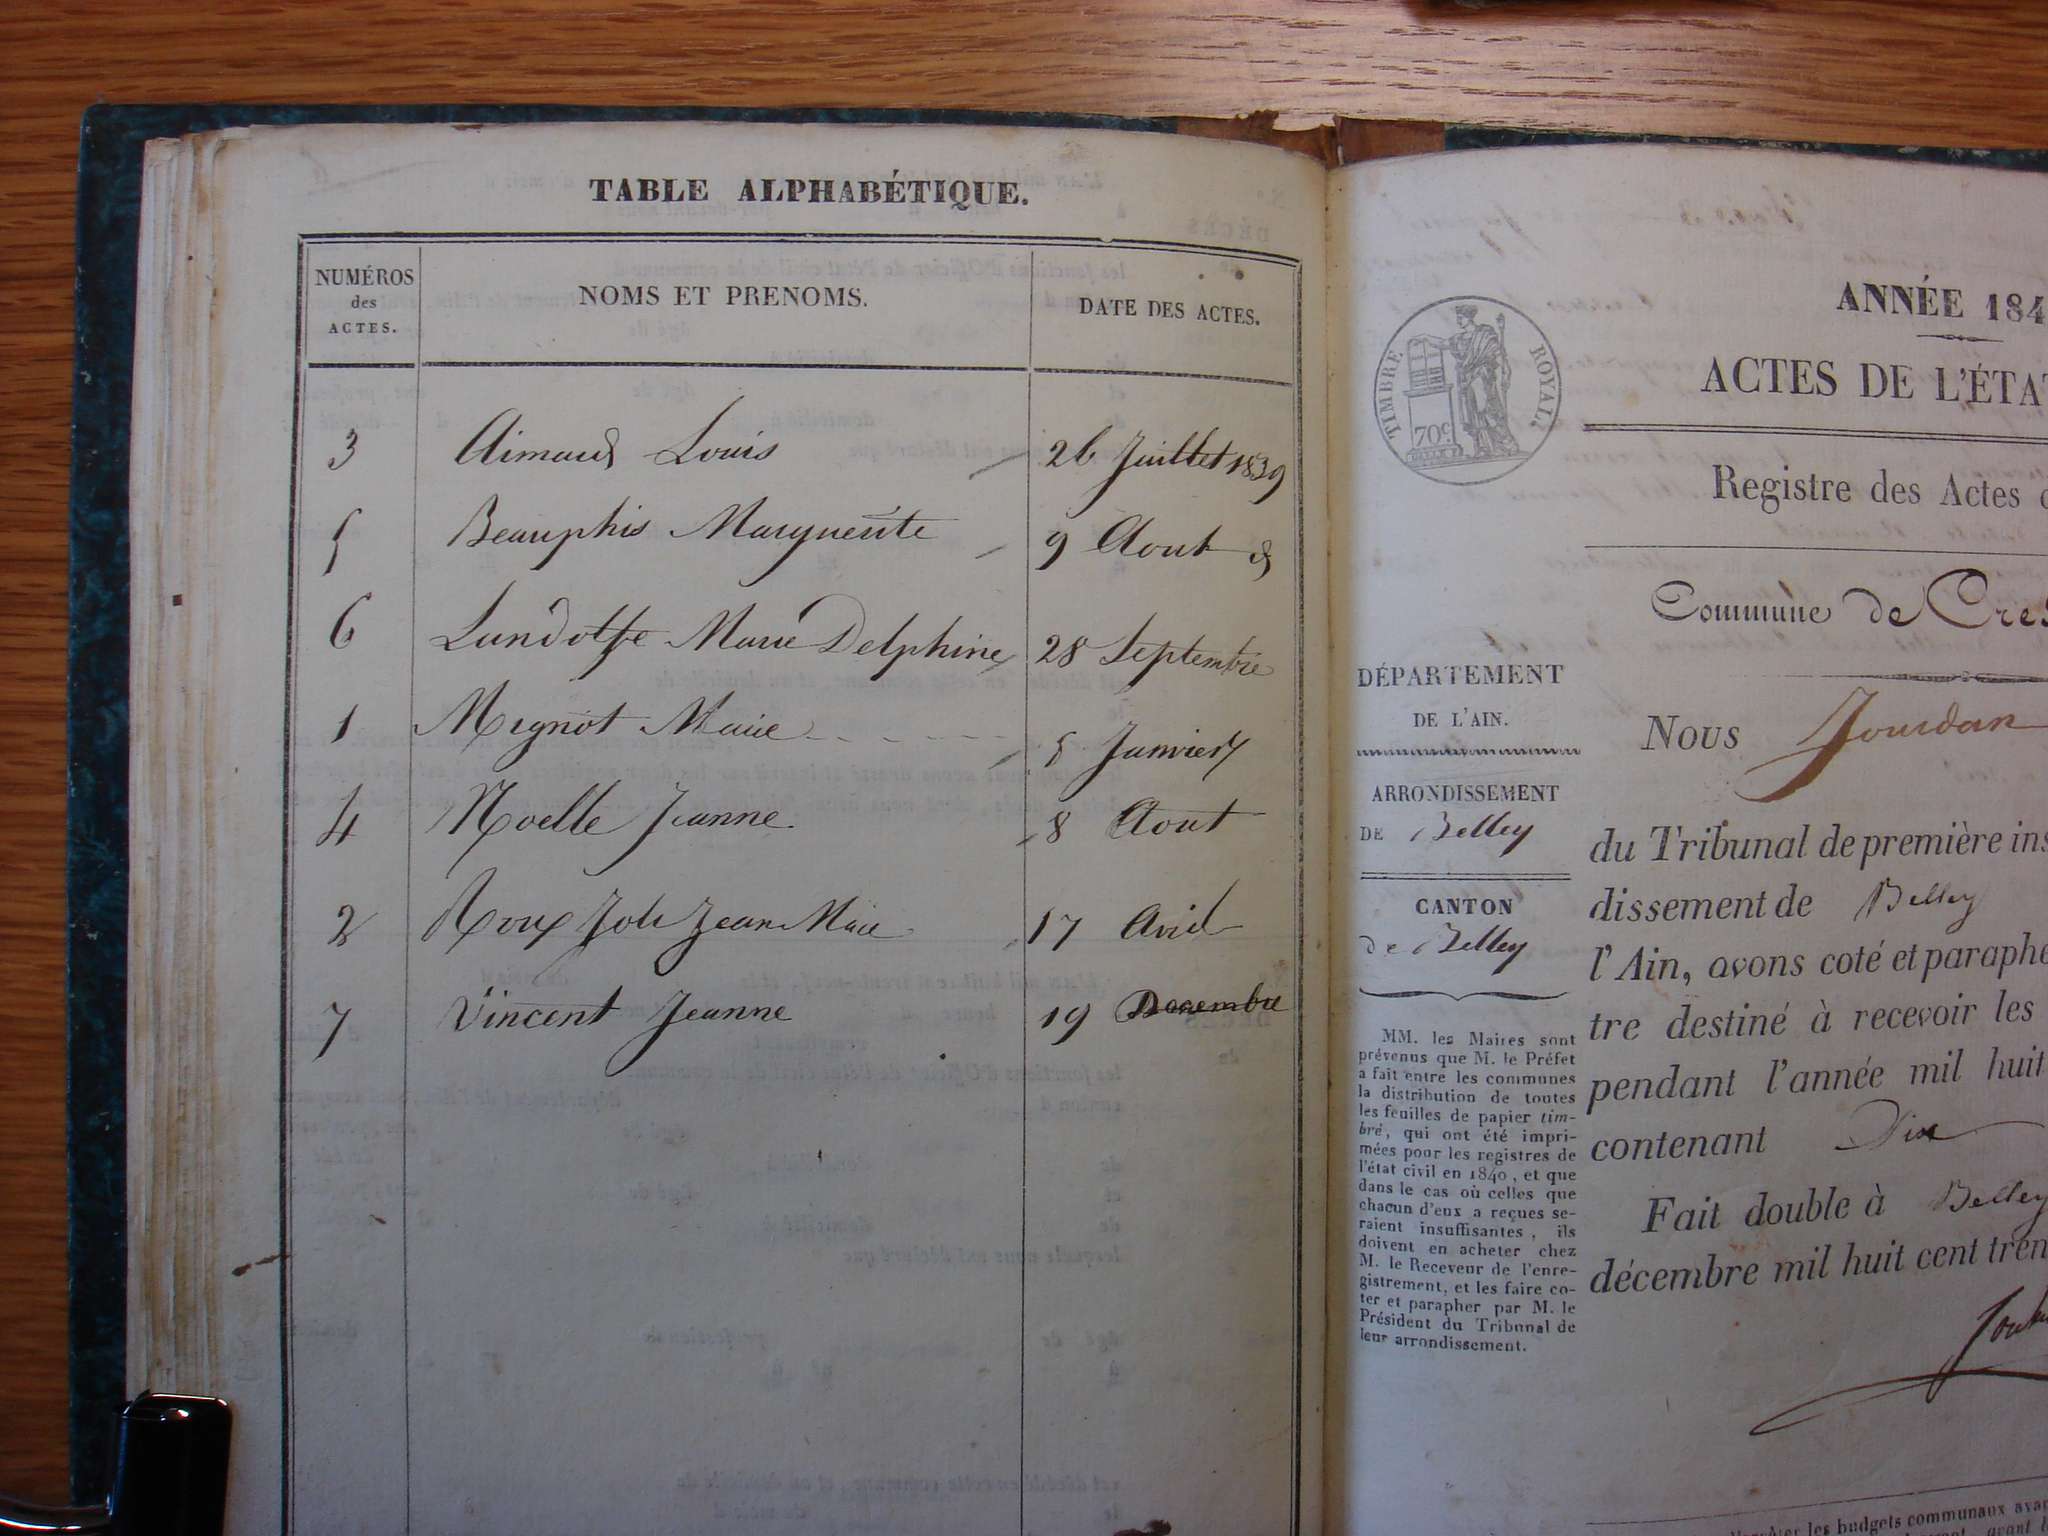 TABLE ALPHABÉTIQUE.
NUMÉROS des ACTES. NOMS ET PRENOMS. DATE DES ACTES.
3 Aimaud Louis 26 Juillet 1839
5 Beauphis Marguerite 9 Aout d
6 Landolfe Marie Delphine 28 Septembre
1 Mignot Marie 5 Janvier
4 Noelle Jeanne 8 Aout
2 Roux Joli Jean Marie 17 Avril
7 Vincent Jeanne 19 Decembre
ANNÉE 184
TIMBRE ROYAL.
70c
ACTES DE L'ÉTA
Registre des Actes d
Commune de Cres
DÉPARTEMENT
DE L'AIN.
ARRONDISSEMENT
DE Belley
CANTON
de Belley
MM. les Maires sont
prévenus que M. le Préfet
a fait entre les communes
la distribution de toutes
les feuilles de papier tim-
bré, qui ont été impri-
mées pour les registres de
l'état civil en 1840, et que
dans le cas où celles que
chacun d'eux a reçues se-
raient insuffisantes, ils
doivent en acheter chez
M. le Receveur de l'enre-
gistrement, et les faire co-
ter et parapher par M. le
Président du Tribunal de
leur arrondissement.
Nous Jourdan
du Tribunal de première ins
dissement de Belley
l'Ain, avons coté et paraphé
tre destiné à recevoir les
pendant l'année mil huit
contenant Dix
Fait double à Belley
décembre mil huit cent tren
les budgets communaux avan